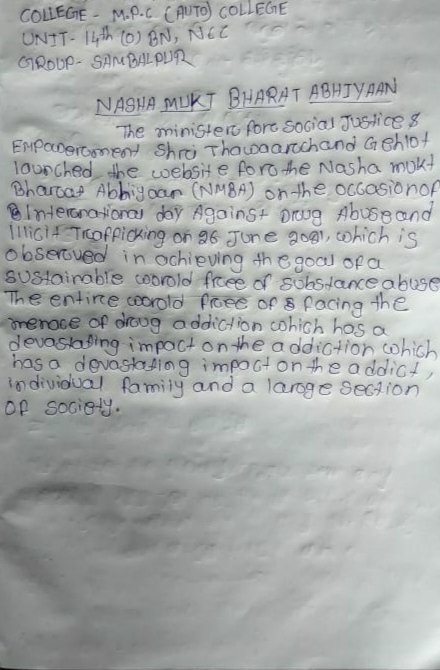 COLLEGE - M.P.C (AUTO) COLLEGE
UNIT - 14th (O) BN, NCC
GROUP - SAMBALPUR
NASHA MUKT BHARAT ABHIYAAN
The minister fore social Justice &
Empowerment Shri Thawaarchand Gehlot
launched the website fore the Nasha mukt
Bharat Abhiyaan (NMBA) on the occasion of
International day Against Drug Abuse and
Illicit Trafficking on 26 June 2021, which is
observed in achieving the goal of a
sustainable world free of substance abuse
The entire world free of & facing the
menace of drug addiction which has a
devastating impact on the addiction which
has a devastating impact on the addict,
individual family and a large section
of society.